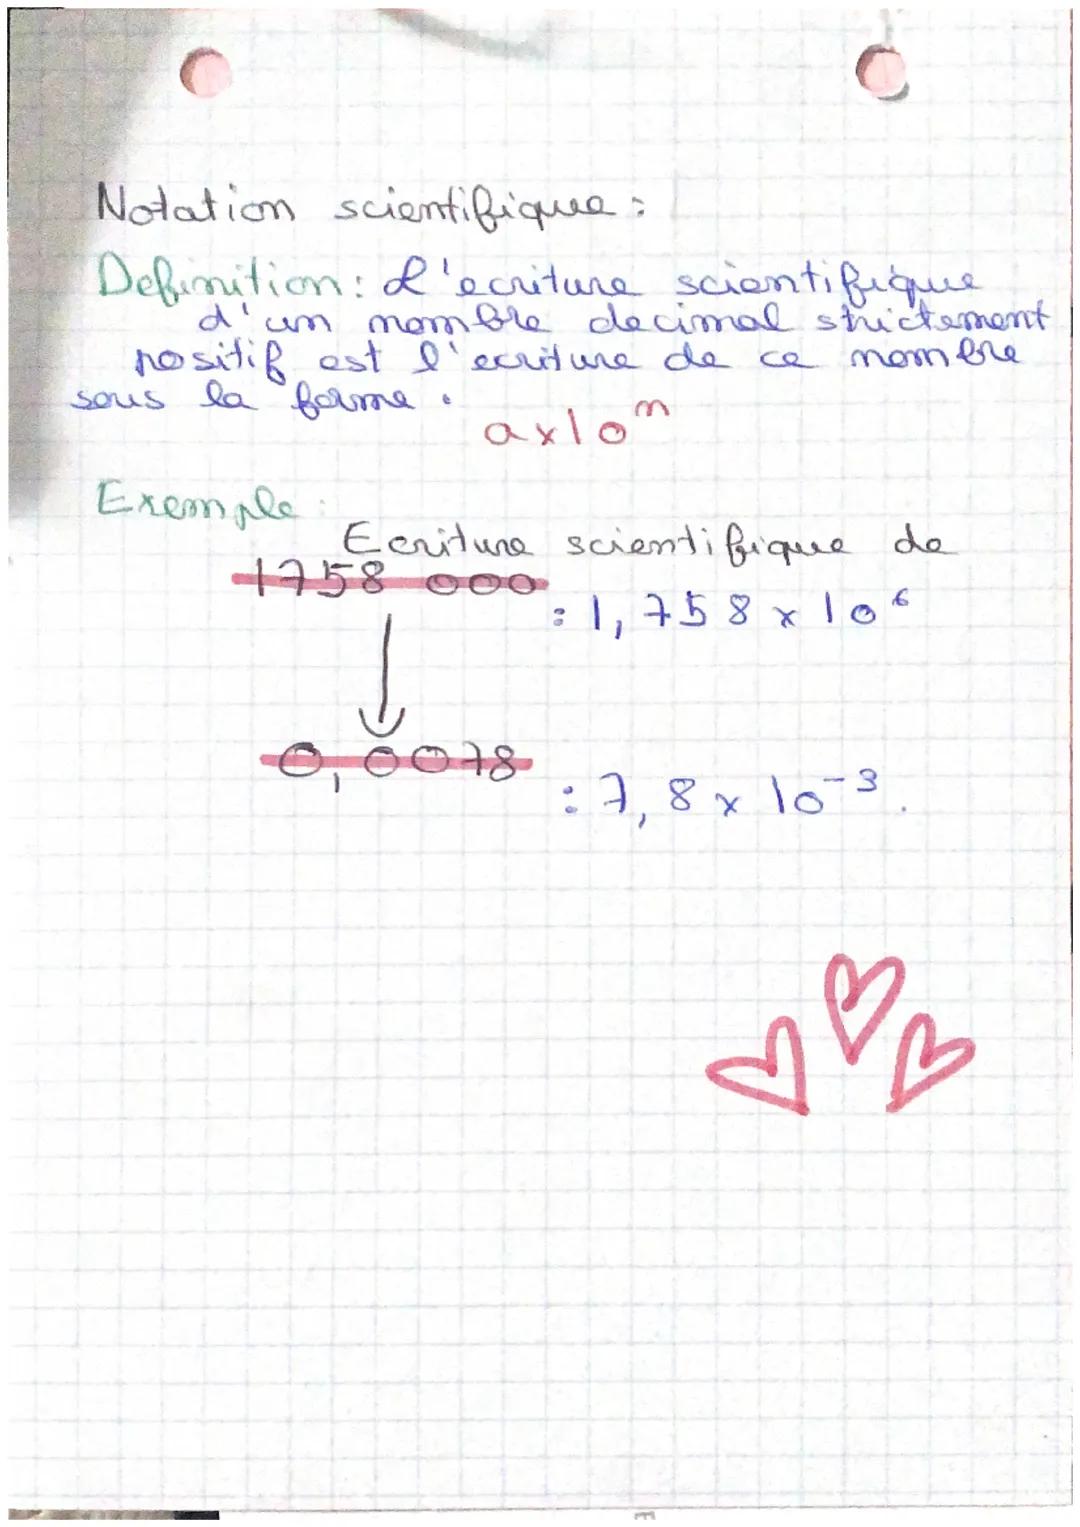 Notation scientifique :
Definition : L'ecriture scientifique
d'un nombre decimal strictement
positif est l'ecriture de ce nombre
sous la forme :
a×10ⁿ
Exemple :
Ecriture scientifique de
1758 000
: 1,758 × 10⁶
0,0078
: 7,8 × 10⁻³.